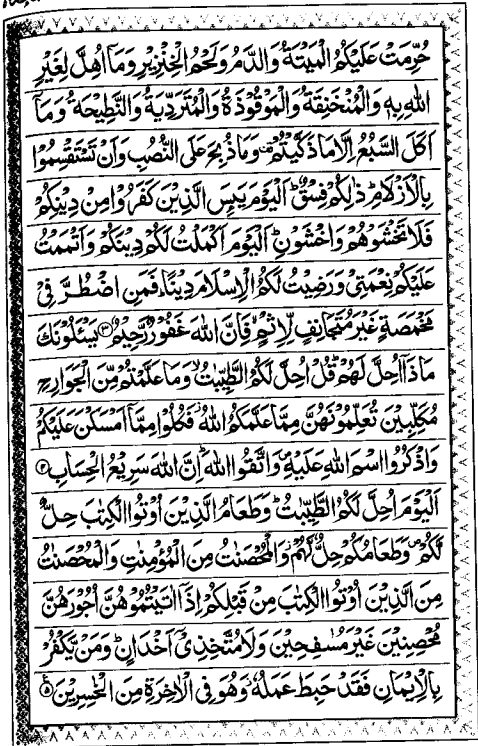 حُرِّمَتْ عَلَيْكُمُ الْمَيْتَةُ وَالدَّمُ وَلَحْمُ الْخِنْزِيْرِ وَمَاۤ اُهِلَّ لِغَيْرِ
اللّٰهِ بِهٖ وَالْمُنْخَنِقَةُ وَالْمَوْقُوْذَةُ وَالْمُتَرَدِّيَةُ وَالنَّطِيْحَةُ وَمَاۤ
اَكَلَ السَّبُعُ اِلَّا مَا ذَكَّيْتُمْ وَمَا ذُبِحَ عَلَى النُّصُبِ وَاَنْ تَسْتَقْسِمُوْا
بِالْاَزْلَامِؕ ذٰلِكُمْ فِسْقٌؕ اَلْيَوْمَ يَىِٕسَ الَّذِيْنَ كَفَرُوْا مِنْ دِيْنِكُمْ
فَلَا تَخْشَوْهُمْ وَاخْشَوْنِؕ اَلْيَوْمَ اَكْمَلْتُ لَكُمْ دِيْنَكُمْ وَاَتْمَمْتُ
عَلَيْكُمْ نِعْمَتِيْ وَرَضِيْتُ لَكُمُ الْاِسْلَامَ دِيْنًاؕ فَمَنِ اضْطُرَّ فِيْ
مَخْمَصَةٍ غَيْرَ مُتَجَانِفٍ لِّاِثْمٍۙ فَاِنَّ اللّٰهَ غَفُوْرٌ رَّحِيْمٌ ۝۳ يَسْـَٔلُوْنَكَ
مَاذَاۤ اُحِلَّ لَهُمْؕ قُلْ اُحِلَّ لَكُمُ الطَّيِّبٰتُۙ وَمَا عَلَّمْتُمْ مِّنَ الْجَوَارِحِ
مُكَلِّبِيْنَ تُعَلِّمُوْنَهُنَّ مِمَّا عَلَّمَكُمُ اللّٰهُؗ فَكُلُوْا مِمَّاۤ اَمْسَكْنَ عَلَيْكُمْ
وَاذْكُرُوا اسْمَ اللّٰهِ عَلَيْهِ۪ وَاتَّقُوا اللّٰهَؕ اِنَّ اللّٰهَ سَرِيْعُ الْحِسَابِ ۝۴
اَلْيَوْمَ اُحِلَّ لَكُمُ الطَّيِّبٰتُؕ وَطَعَامُ الَّذِيْنَ اُوْتُوا الْكِتٰبَ حِلٌّ
لَّكُمْ۪ وَطَعَامُكُمْ حِلٌّ لَّهُمْؗ وَالْمُحْصَنٰتُ مِنَ الْمُؤْمِنٰتِ وَالْمُحْصَنٰتُ
مِنَ الَّذِيْنَ اُوْتُوا الْكِتٰبَ مِنْ قَبْلِكُمْ اِذَاۤ اٰتَيْتُمُوْهُنَّ اُجُوْرَهُنَّ
مُحْصِنِيْنَ غَيْرَ مُسٰفِحِيْنَ وَلَا مُتَّخِذِيْۤ اَخْدَانٍؕ وَمَنْ يَّكْفُرْ
بِالْاِيْمَانِ فَقَدْ حَبِطَ عَمَلُهٗؗ وَهُوَ فِي الْاٰخِرَةِ مِنَ الْخٰسِرِيْنَ ۝۵